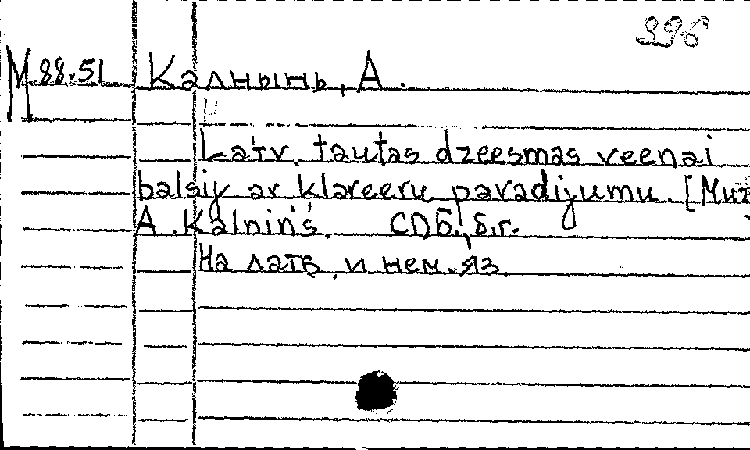 396
M 88.51 Калнынь, А.
Latv. tautas dzeesmas veenai
balsij ar klaveeru pavadijumu. [Muz
A. Kalniņš. СПб., б.г.
На латв. и нем. яз.